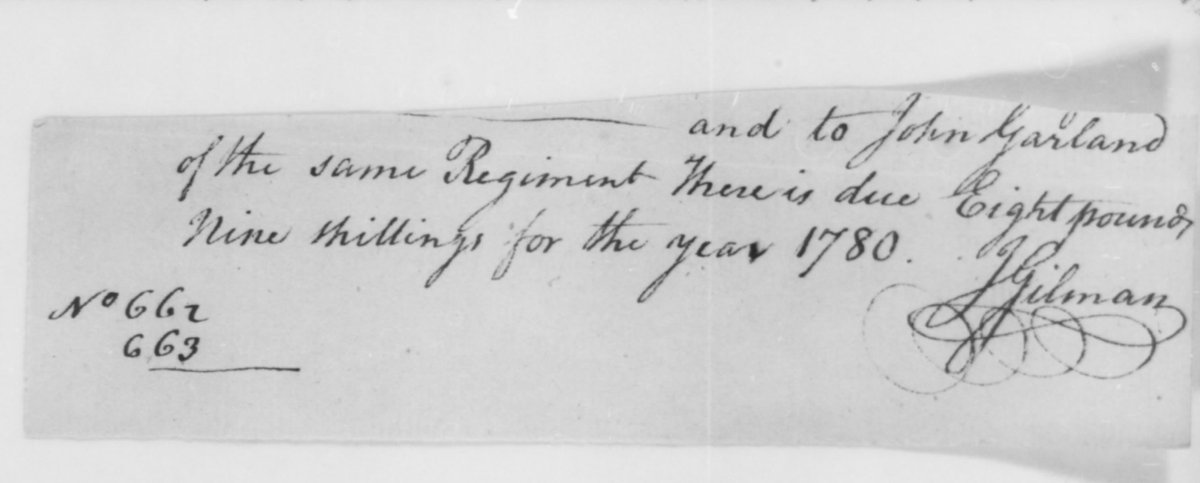 and to John Garland
of the same Regiment There is due Eight pounds
Nine shillings for the year 1780.
JGilman
No 662
663